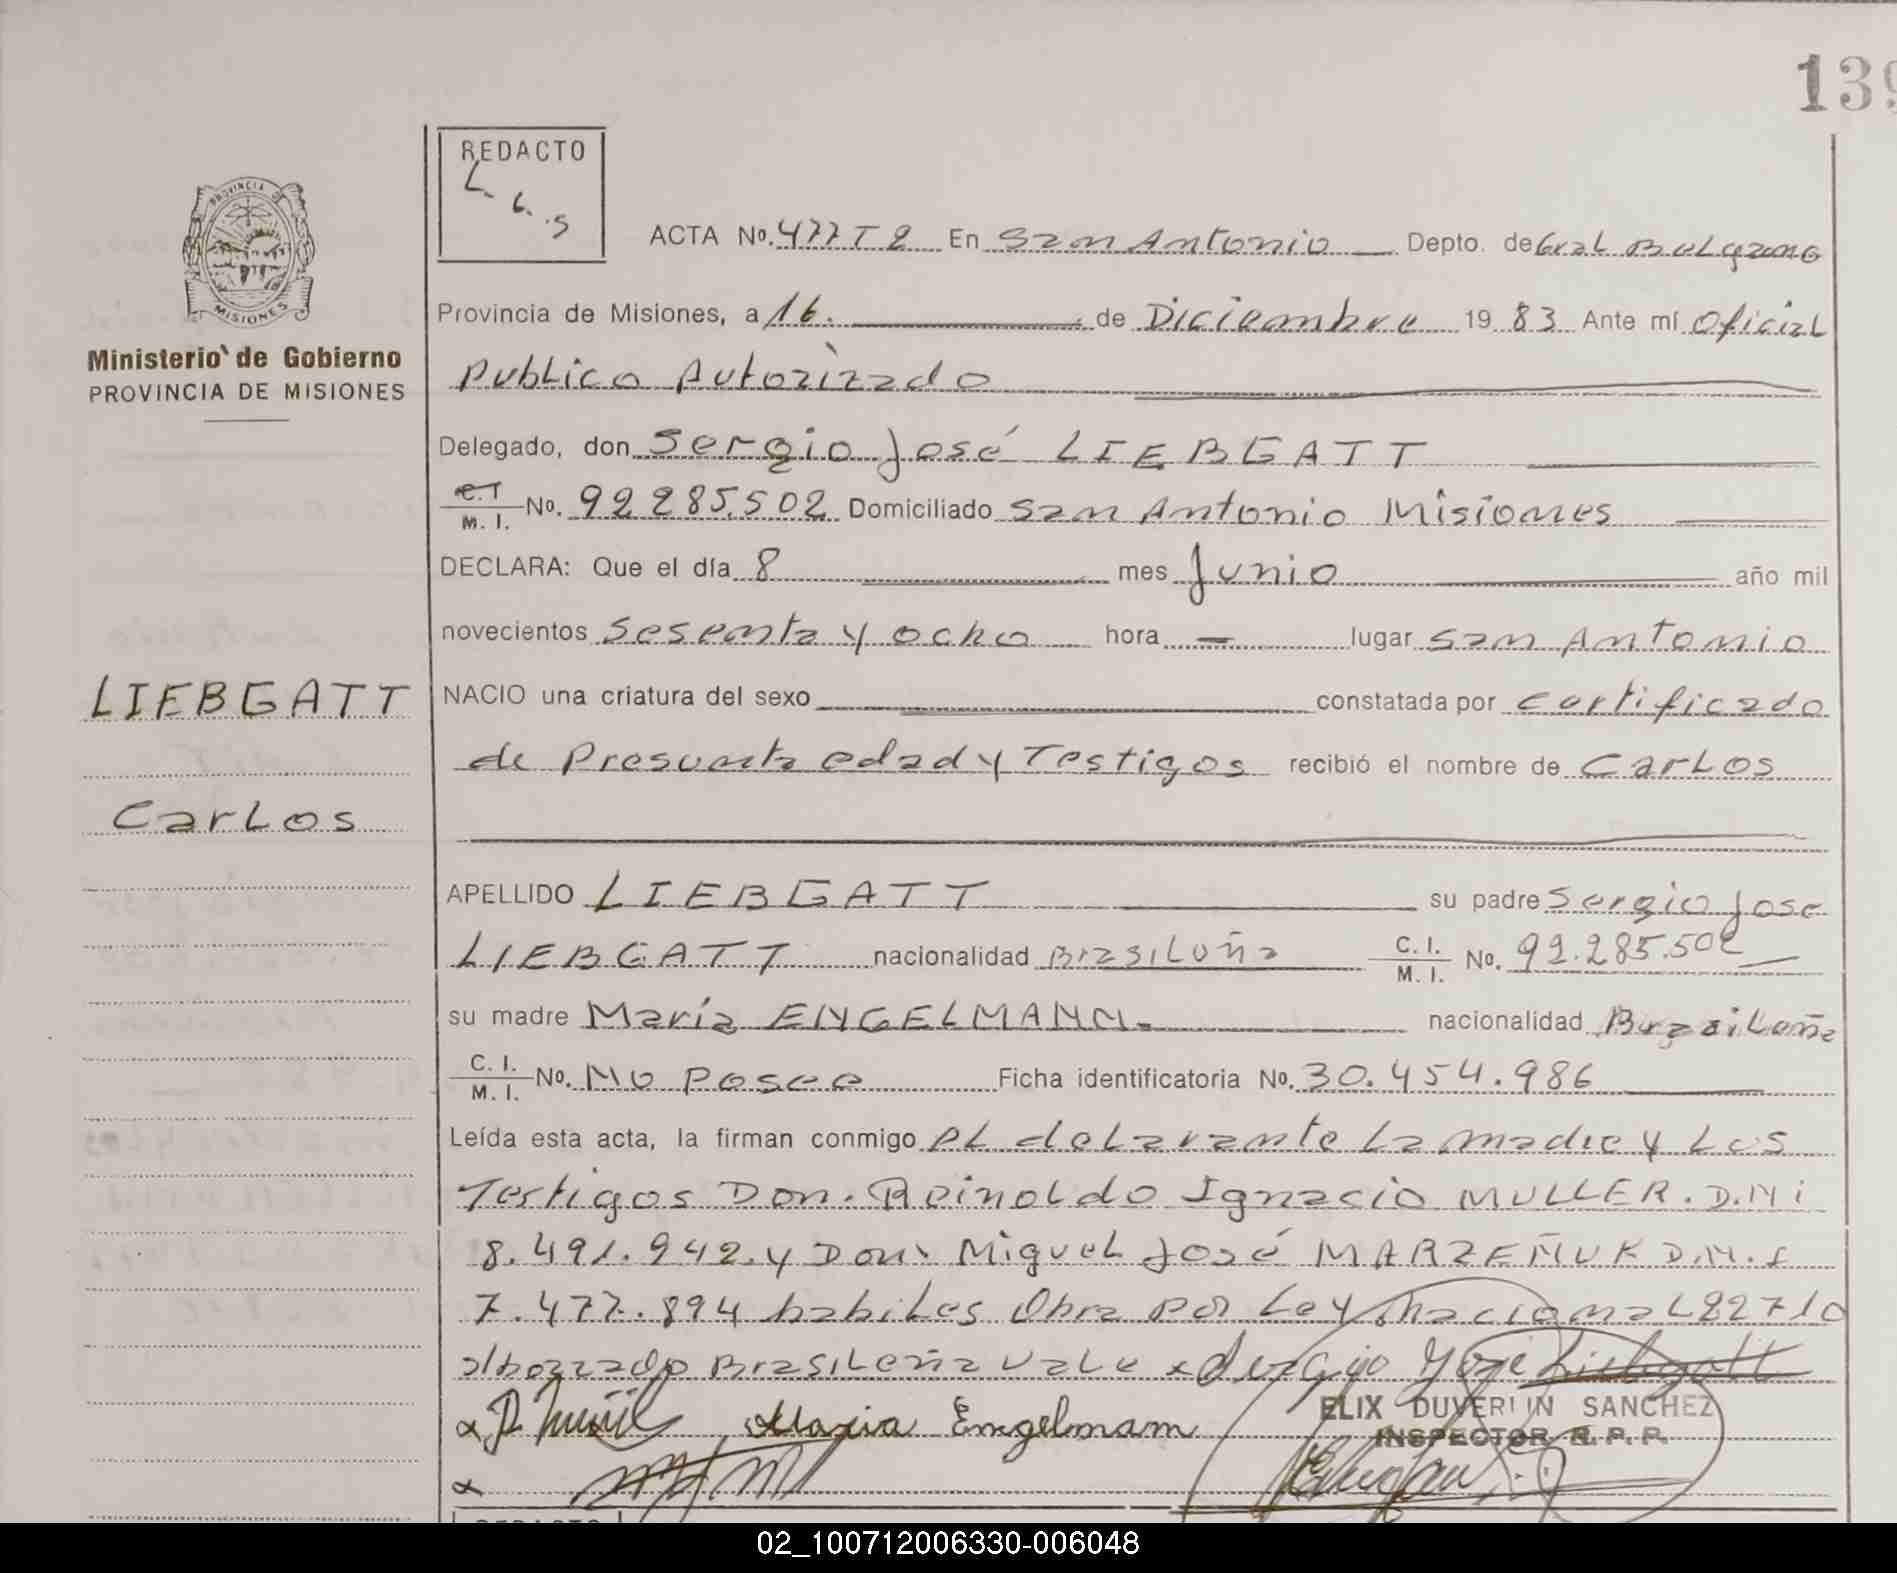 139
REDACTO
L. G. S
PROVINCIA DE
MISIONES
Ministerio de Gobierno
PROVINCIA DE MISIONES
LIEBGATT
Carlos
ACTA No. 477 T 2 En San Antonio Depto. de Gral Belgrano
Provincia de Misiones, a 16. de Diciembre 19 83 Ante mí Oficial
Publico Autorizado
Delegado, don Sergio José LIEBGATT
C.I M. I. No. 92.285.502 Domiciliado San Antonio Misiones
DECLARA: Que el día 8 mes Junio año mil
novecientos Sesenta y ocho hora — lugar San Antonio
NACIO una criatura del sexo constatada por certificado
de Presunta edad y Testigos recibió el nombre de Carlos
APELLIDO LIEBGATT su padre Sergio Jose
LIEBGATT nacionalidad Brasileña C. I. M. I. No. 92.285.502
su madre María ENGELMANN. nacionalidad Brasileña
C. I. M. I. No. No Posee Ficha identificatoria No. 30.454.986
Leída esta acta, la firman conmigo el delarante La madre y Los
Testigos Don. Reinoldo Ignacio MULLER. D.N i
8.491.942. y Don. Miguel José MARZEÑUK D.N.I
7.477.894 habiles Obra por Ley Nacional 22710
Brasileña vale x Sergio Jose Liebgatt
x Maria Engelmam
ELIX DUVERLIN SANCHEZ
INSPECTOR R. P. P.
x
REDACTO
02_100712006330-006048